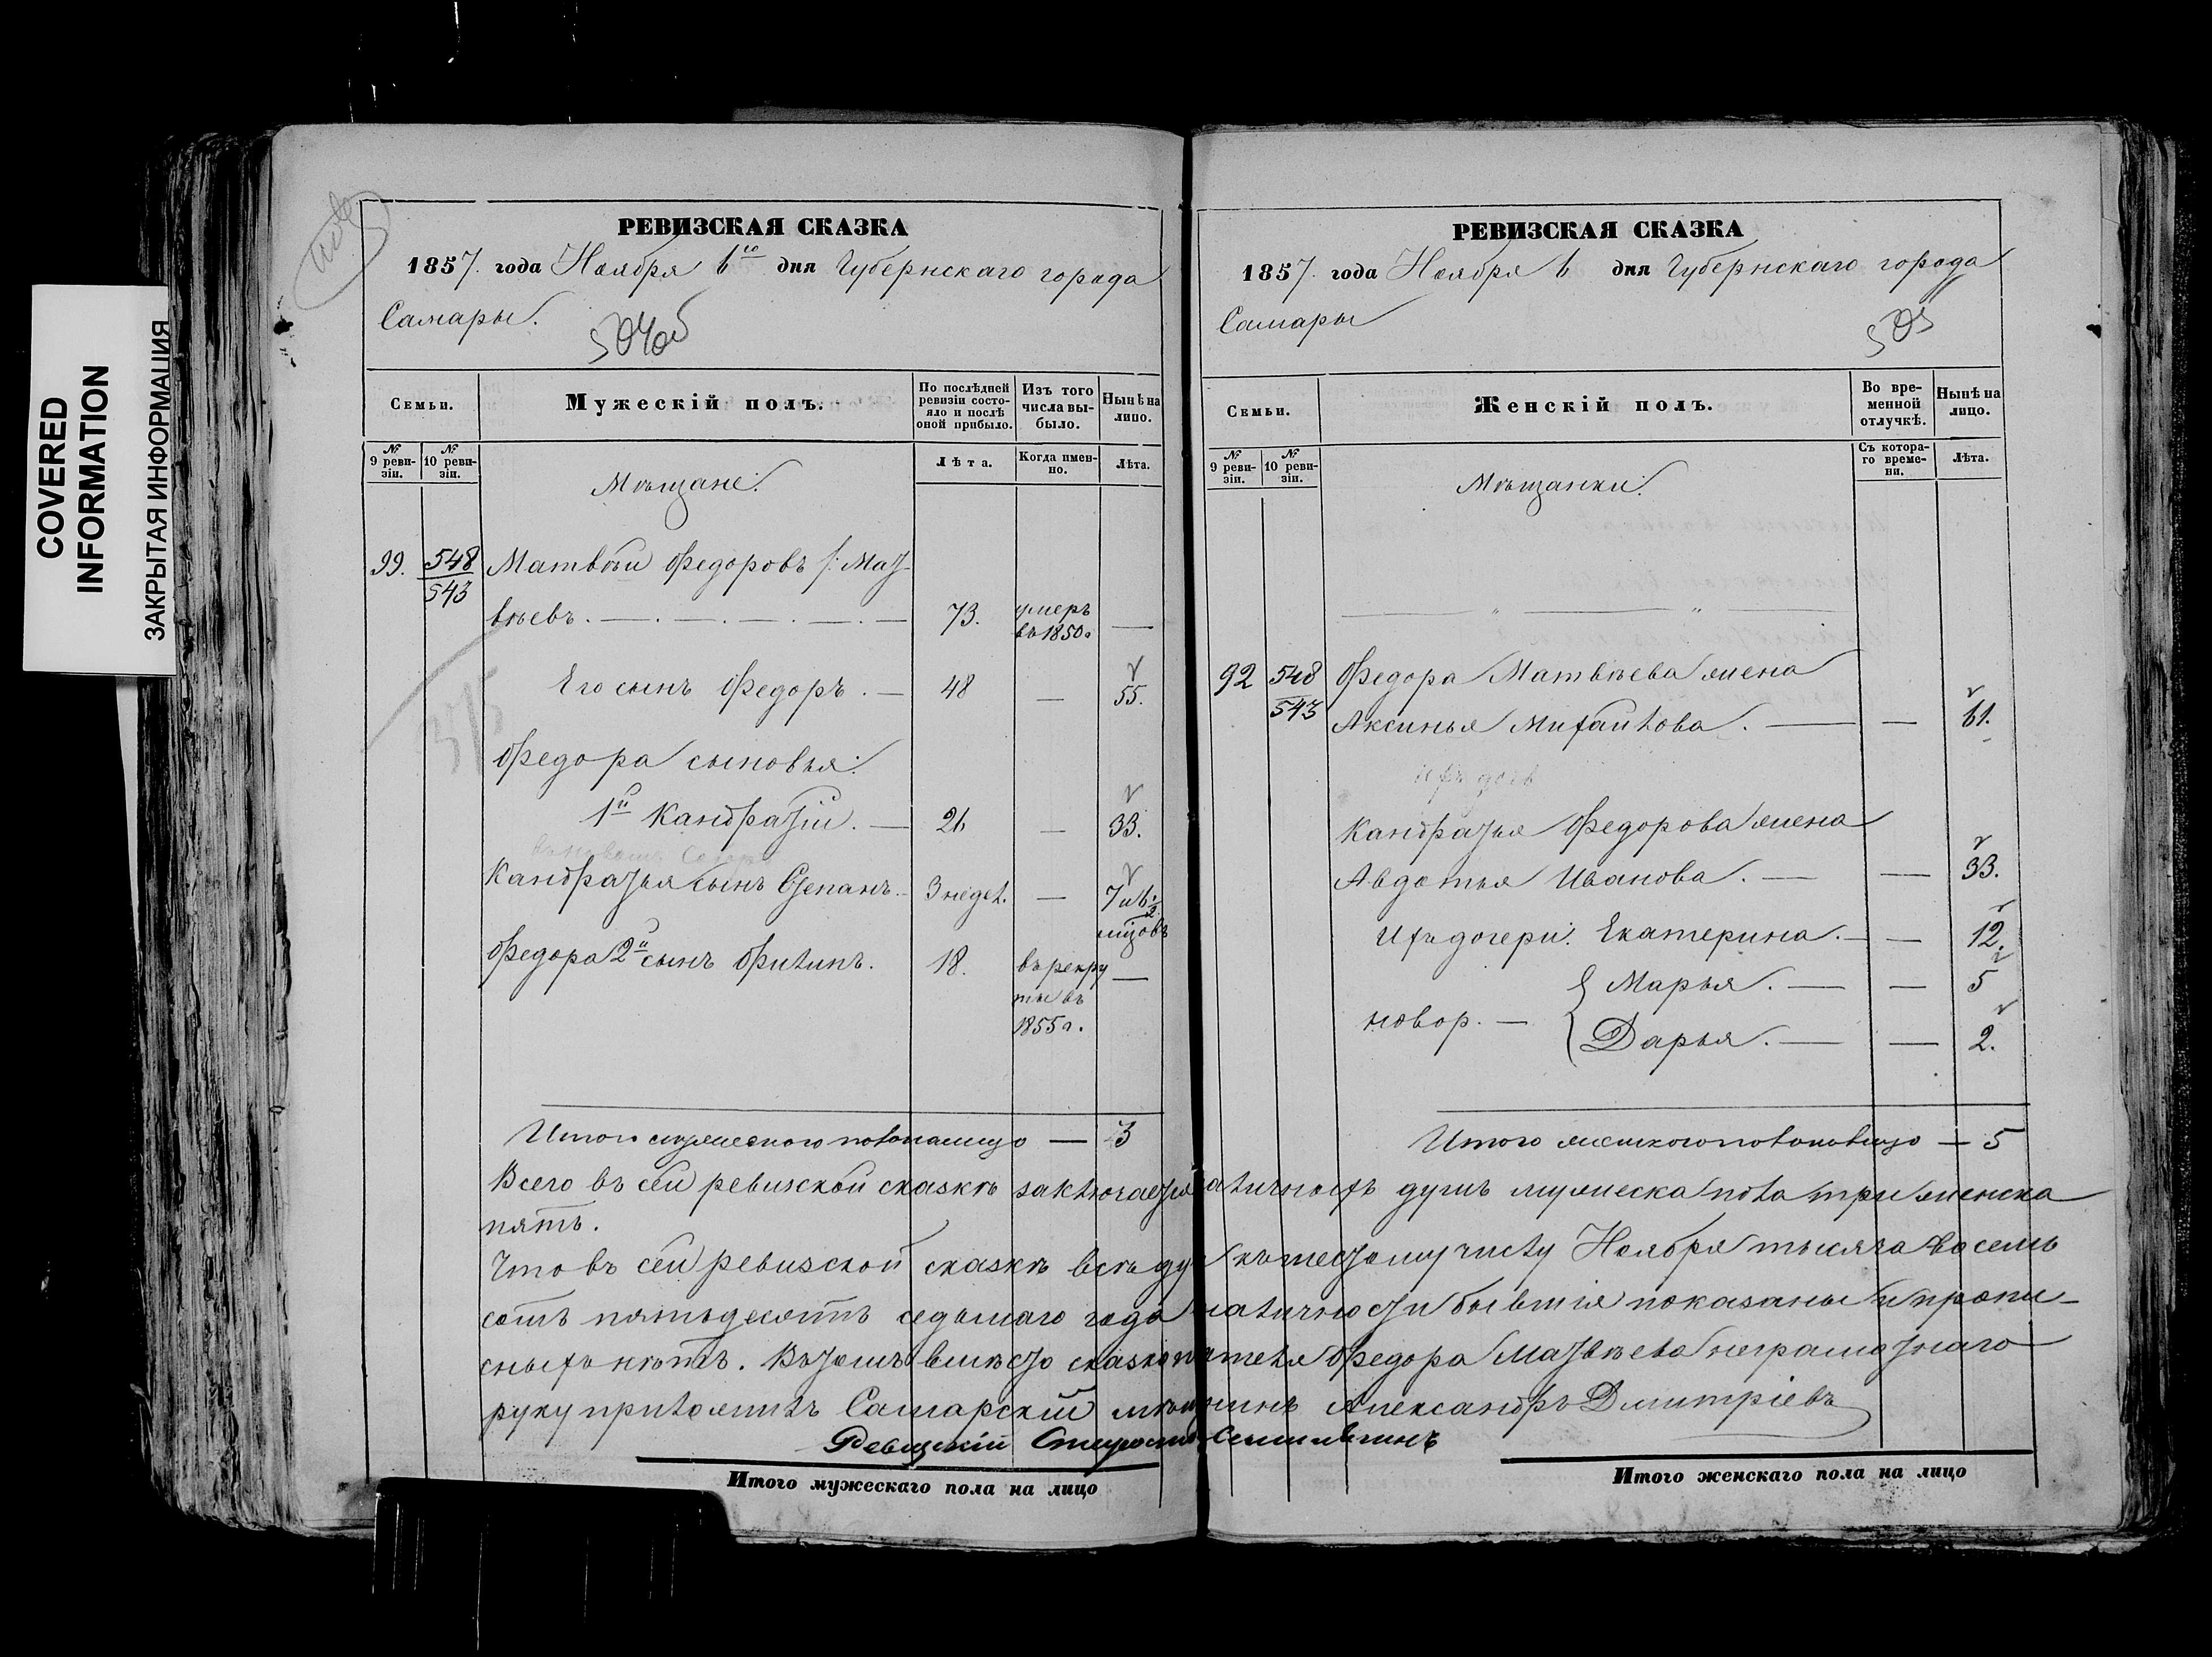 COVERED
INFORMATION
ЗАКРЫТАЯ ИНФОРМАЦИЯ
РЕВИЗСКАЯ СКАЗКА
1857. года Ноября 6го дня Губернскаго города
Самары.
504об
Семьи.
Мужескій полъ.
По послѣдней ревизіи состояло и послѣ оной прибыло.
Изъ того числа выбыло.
Нынѣ на лицо.
№ 9 ревизіи.
№ 10 ревизіи.
Мѣщане.
Лѣта.
Когда именно.
Лѣта.
99. 548 Матвѣй Федоровъ /: Мат-
543
вѣевъ. 73. умеръ въ 1850г —
Его сынъ Федоръ. — 48 — 55.
375
Федора сыновья:
1й Кандратій. — 26 — 33.
Кандратья сынъ Степанъ. 3 недел. — 7 и 6 1/2 мцовъ
Федора 2й сынъ Филипъ. 18. въ рекруты въ 1855г. —
Итого мужескаго пола на лицо — 3
РЕВИЗСКАЯ СКАЗКА
1857. года Ноября 6 дня Губернскаго города
Самары
505
Семьи.
Женскій полъ.
Во временной отлучкѣ.
Нынѣ на лицо.
№ 9 ревизіи.
№ 10 ревизіи.
Мѣщанки.
Съ котораго времени.
Лѣта.
92 548 Федора Матвѣева жена
543 Аксинья Михайлова. — — 61.
Кандратья Федорова жена
Авдотья Иванова. — — 33.
Ихъ дочери: Екатерина. — — 12.
Марья. — — 5
новор. —
Дарья. — — 2.
Итого женскаго пола на лицо — 5
Всего въ сей ревизской сказкѣ заключается наличность душъ мужеска пола три женска
пять.
Что въ сей ревизской сказкѣ всѣ ду къ шестому числу Ноября тысяча восемь
сотъ пятьдесятъ седьмаго года наличности бывшія показаны и пропи-
сныхъ нѣтъ. Въ томъ вмѣсто сказкоподателя Федора Матвѣева неграмотнаго
руку приложилъ Самарскій мѣщанинъ Александръ Дмитріевъ
Ревизскій Староста
Итого мужескаго пола на лицо
Итого женскаго пола на лицо